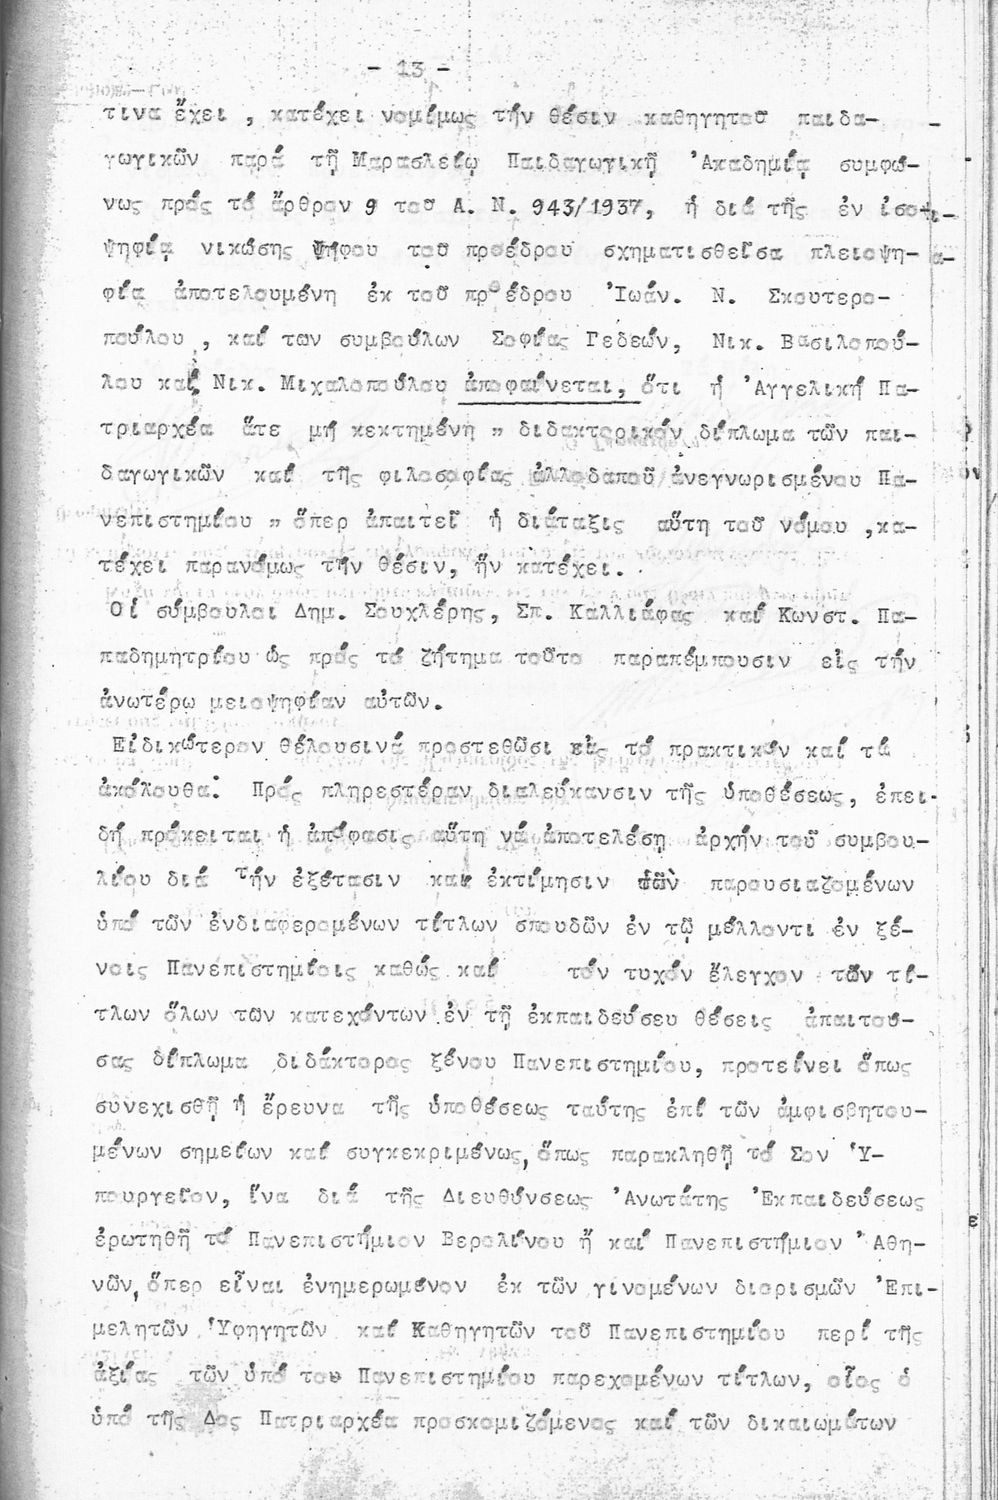 - 13 -
τινα ἔχει , κατέχει νομίμως τήν θέσιν καθηγητοῦ παιδα-
γωγικῶν παρά τῇ Μαρασλείῳ Παιδαγωγικῇ Ἀκαδημίᾳ συμφώ-
νως πρός τό ἄρθρον 9 τοῦ Α. Ν. 943/1937, ἡ διά τῆς ἐν ἰσο-
ψηφίᾳ νικώσης ψήφου τοῦ προέδρου σχηματισθεῖσα πλειοψη-
φία ἀποτελουμένη ἐκ τοῦ προέδρου Ἰωάν. Ν. Σκουτερο-
πούλου , καί των συμβούλων Σοφίας Γεδεών, Νικ. Βασιλοπού-
λου καί Νικ. Μιχαλοπούλου ἀποφαίνεται, ὅτι ἡ Ἀγγελική Πα-
τριαρχέα ἅτε μή κεκτημένη " διδακτορικόν δίπλωμα τῶν παι-
δαγωγικῶν καί τῆς φιλοσοφίας ἀλλοδαποῦ ἀνεγνωρισμένου Πα-
νεπιστημίου " ὅπερ ἀπαιτεῖ ἡ διάταξις αὕτη τοῦ νόμου ,κα-
τέχει παρανόμως τήν θέσιν, ἥν κατέχει.
Οἱ σύμβουλοι Δημ. Σουχλέρης, Σπ. Καλλιάφας καί Κωνστ. Πα-
παδημητρίου ὡς πρός τό ζήτημα τοῦτο παραπέμπουσιν εἰς τήν
ἀνωτέρω μειοψηφίαν αὐτῶν.
Εἰδικώτερον θέλουσινά προστεθῶσι εἰς τό πρακτικόν καί τά
ἀκόλουθα: Πρός πληρεστέραν διαλεύκανσιν τῆς ὑποθέσεως, ἐπει-
δή πρόκειται ἡ ἀπόφασις αὕτη νά ἀποτελέσῃ ἀρχήν τοῦ συμβου-
λίου διά τήν ἐξέτασιν καί ἐκτίμησιν τῶν παρουσιαζομένων
ὑπό τῶν ἐνδιαφερομένων τίτλων σπουδῶν ἐν τῷ μέλλοντι ἐν ξέ-
νοις Πανεπιστημίοις καθώς καί τόν τυχόν ἔλεγχον τῶν τί-
τλων ὅλων τῶν κατεχόντων ἐν τῇ ἐκπαιδεύσευ θέσεις ἀπαιτού-
σας δίπλωμα διδάκτορος ξένου Πανεπιστημίου, προτείνει ὅπως
συνεχισθῇ ἡ ἔρευνα τῆς ὑποθέσεως ταύτης ἐπί τῶν ἀμφισβητου-
μένων σημείων καί συγκεκριμένως, ὅπως παρακληθῇ τό Σον Ὑ-
πουργεῖον, ἵνα διά τῆς Διευθύνσεως Ἀνωτάτης Ἐκπαιδεύσεως
ἐρωτηθῇ τό Πανεπιστήμιον Βερολίνου ἤ καί Πανεπιστήμιον Ἀθη-
νῶν, ὅπερ εἶναι ἐνημερωμένον ἐκ τῶν γινομένων διορισμῶν Ἐπι-
μελητῶν Ὑφηγητῶν καί Καθηγητῶν τοῦ Πανεπιστημίου περί τῆς
ἀξίας τῶν ὑπό του Πανεπιστημίου παρεχομένων τίτλων, οἷος ὁ
ὑπό τῆς Δος Πατριαρχέα προσκομιζόμενος καί τῶν δικαιωμάτων